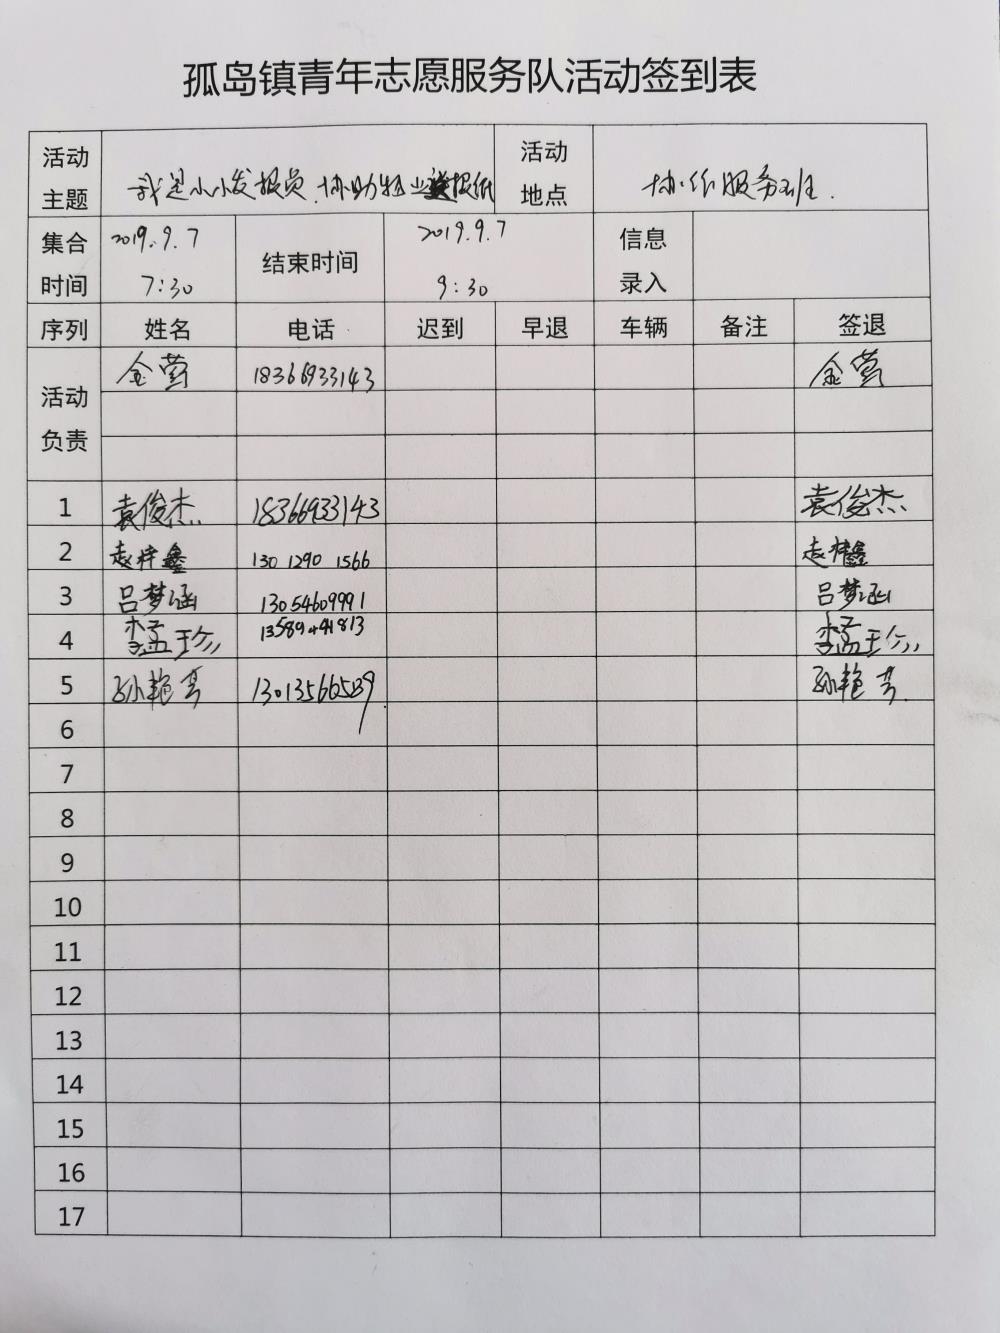 孤岛镇青年志愿服务队活动签到表
活动主题 我是小小发报员.协助物业送报纸 活动地点 协作服务班.
集合时间 2019.9.7 7:30 结束时间 2019.9.7 9:30 信息录入
序列 姓名 电话 迟到 早退 车辆 备注 签退
活动负责 金营 18366933143 金营
1 袁俊杰 18366933143 袁俊杰
2 赵梓鑫 130 1290 1566 赵梓鑫
3 吕梦涵 13054609991 吕梦涵
4 李孟珍 李孟珍
5 孙艳芳 孙艳芳
6
7
8
9
10
11
12
13
14
15
16
17